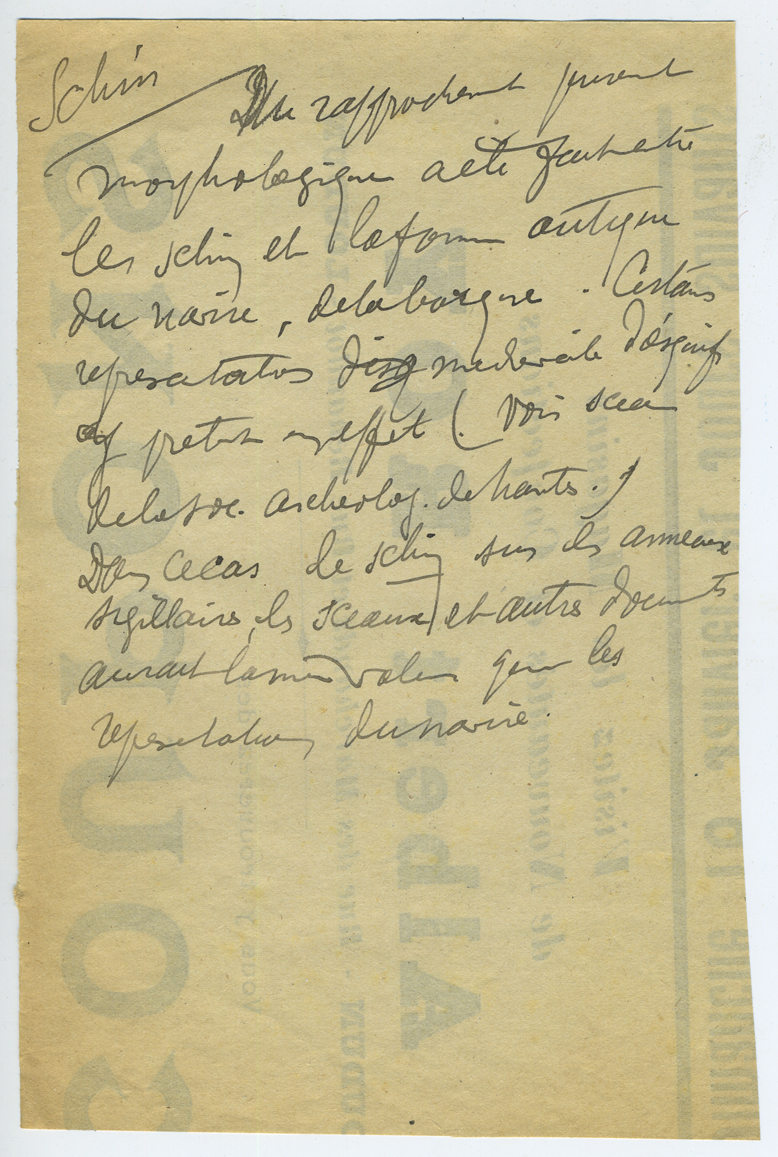 Schin
Un rapprochement purement
morphologique a été fait entre
les schin et la forme antique
du navire, de la barque. Certains
representations medievale d'esquifs
y pretent en effet (voir sceau
de la soc. archeolog. de Nantes.)
Dans ce cas le schin sur les anneaux
sigillaires, les sceaux et autres documents
aurait la même valeur que les
representations du navire.